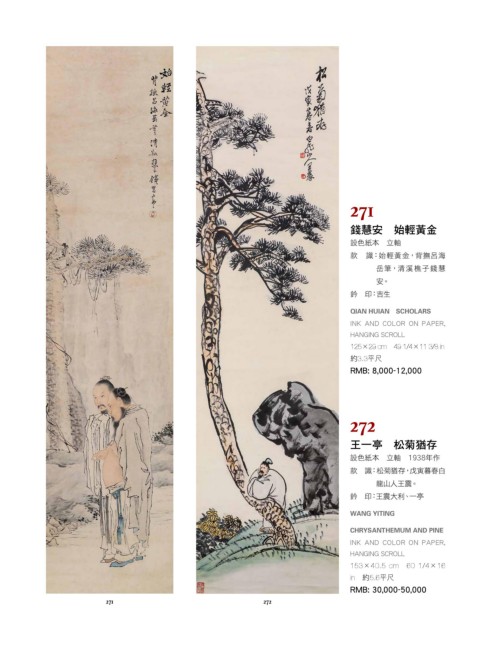 始輕黃金
松菊猶存
271
錢慧安　始輕黃金
設色紙本　立軸
款　識：始輕黃金，背撫呂海
岳筆，清溪樵子錢慧
安。
鈐　印：吉生
QIAN HUIAN　SCHOLARS
INK AND COLOR ON PAPER,
HANGING SCROLL
125×29 cm　49 1/4×11 3/8 in
約3.3平尺
RMB: 8,000-12,000
272
王一亭　松菊猶存
設色紙本　立軸　1938年作
款　識：松菊猶存，戊寅暮春白
龍山人王震。
鈐　印：王震大利、一亭
WANG YITING
CHRYSANTHEMUM AND PINE
INK AND COLOR ON PAPER,
HANGING SCROLL
153×40.5 cm　60 1/4×16
in　約5.6平尺
RMB: 30,000-50,000
271
272